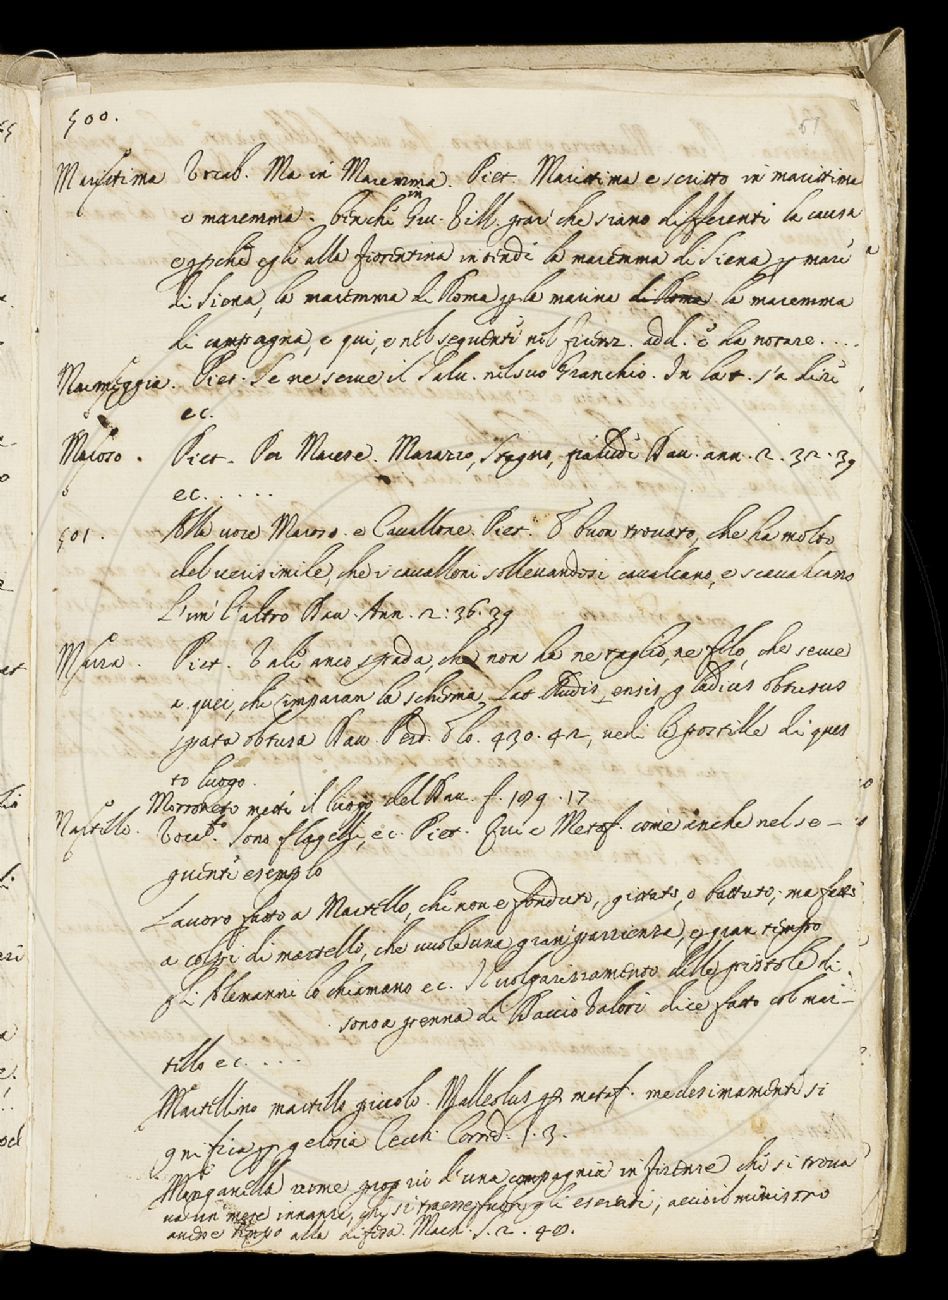 500.
61
Marittima Vocab. Ma in Maremma. Piet. Marittima e scritto in marittima
e maremma. benche in Giu. Vill. par che siano differenti la causa
e perche egli alla fiorentina intende la maremma di Siena per mare
di Siena, la maremma di Roma per la marina di Roma la maremma
di campagna, e qui, e nel seguente nel firenz. add. è da notare....
Marmeggia. Piet. Se ne serve il Salu. nel suo Granchio. In lat. s'a dire
ec.
Maroso. Piet. Per Macere. Marazzo, Stagno, Dau. ann. 2. 32. 39
ec.....
501. Alla voce Maroso. e Cavallone. Piet. È buon trovato, che ha molto
del verisimile, che i cavalloni sollevandosi cavalcano, e scavalcano
L'un l'altro Dau. Ann. 2. 36. 39
Marra. Piet. Vale anco spada, che non ha ne taglio, ne filo, che serve
a quei, che imparan la scherma, Lat. Rudis, ensis, gladius obtusus
spata obtusa Dau. Perd. Elo. 430. 42, vedi le postille di ques
to luogo.
Morroneto metti il luogo del Dau. f. 189. 17
Martello. Vocab.º Sono flagelli, ec. Piet. Qui e Metaf. come anche nel se-
guente esemplo
Lavoro fatto a Martello, che non e fonduto, gittato, o battuto, ma fatto
a colpi di martello, che vuole una gran pazzienza, e gran tempo
gl'Alemanni lo chiamano ec. Il volgarizzamento delle pistole di
sono a penna di Baccio Valori dice fatto col mar-
tello ec....
Martellino martello piccolo. Malleolus per metaf. medesimamente si
gnifica per gelosia Cecch. Corred. 1. 3.
Manganella nome proprio d'una compagnia in firenze che si trova
va un mese innanzi, che si traesse fuori gli eserciti, accioò ministro
anche tempo alla difesa. Mach. S. 2. 40.